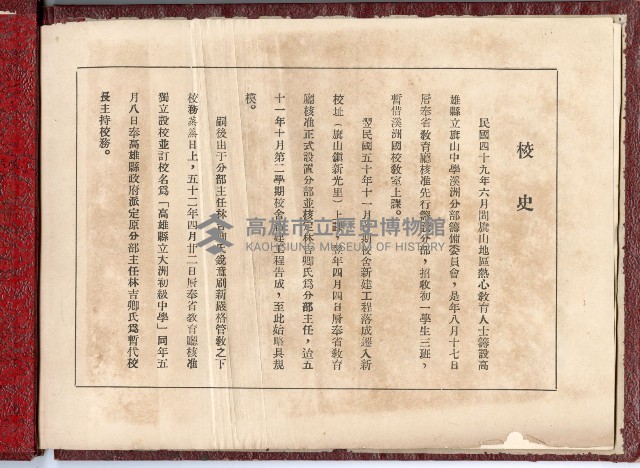 校史
民國四十九年六月間旗山地區熱心教育人士籌設高
雄縣立旗山中學溪洲分部籌備委員會，是年八月十七日
層奉省教育廳核准先行籌設分部，招收初一學生三班，
暫借溪洲國校教室上課。
翌民國五十年十一月 新校舍新建工程落成遷入新
校址（旗山鎮新光里）上課 年四月四日層奉省教育
廳核准正式設置分部並核 林吉卿氏爲分部主任，迨五
十一年十月第二學期校舍 建工程告成，至此始略具規
模。
嗣後由于分部主任林吉卿氏銳意刷新嚴格管教之下
校務蒸蒸日上，五十二年四月廿二日層奉省教育廳核准
獨立設校並訂校名爲「高雄縣立大洲初級中學」同年五
月八日奉高雄縣政府派定原分部主任林吉卿氏爲暫代校
長主持校務。
高雄市立歷史博物館
KAOHSIUNG MUSEUM OF HISTORY